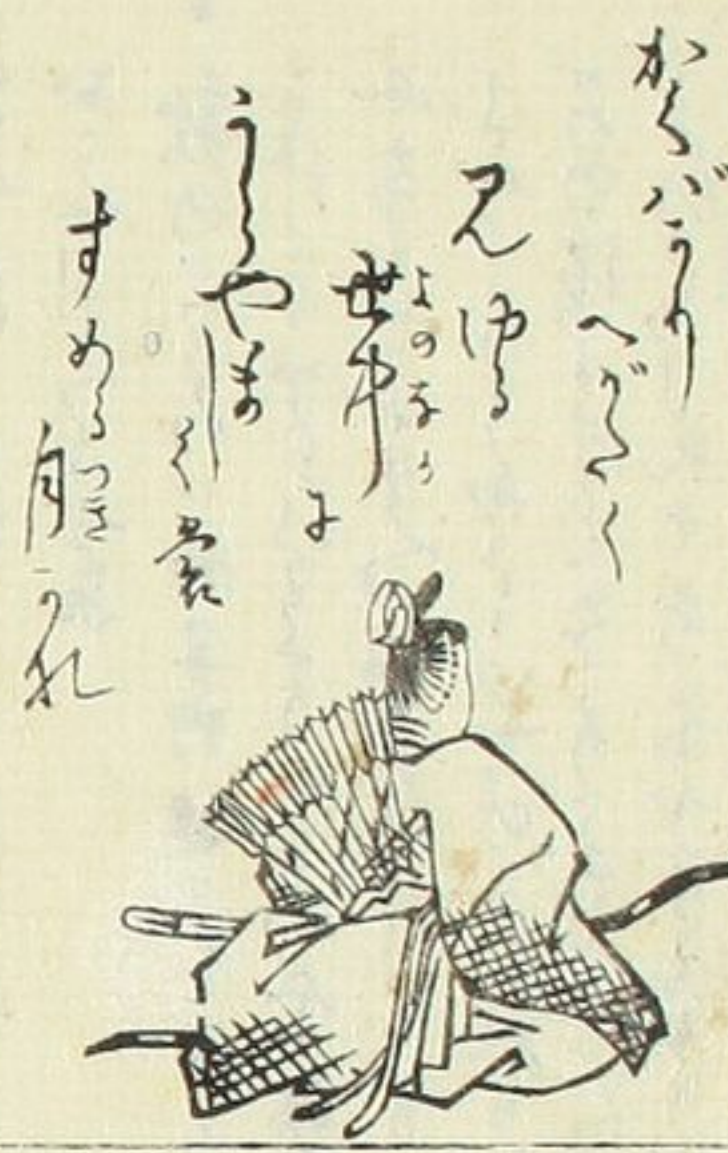 かくばかり
へがたく
見ゆる
よのなか
世中
に
うらやまし
くも
すめる
つき
月かな